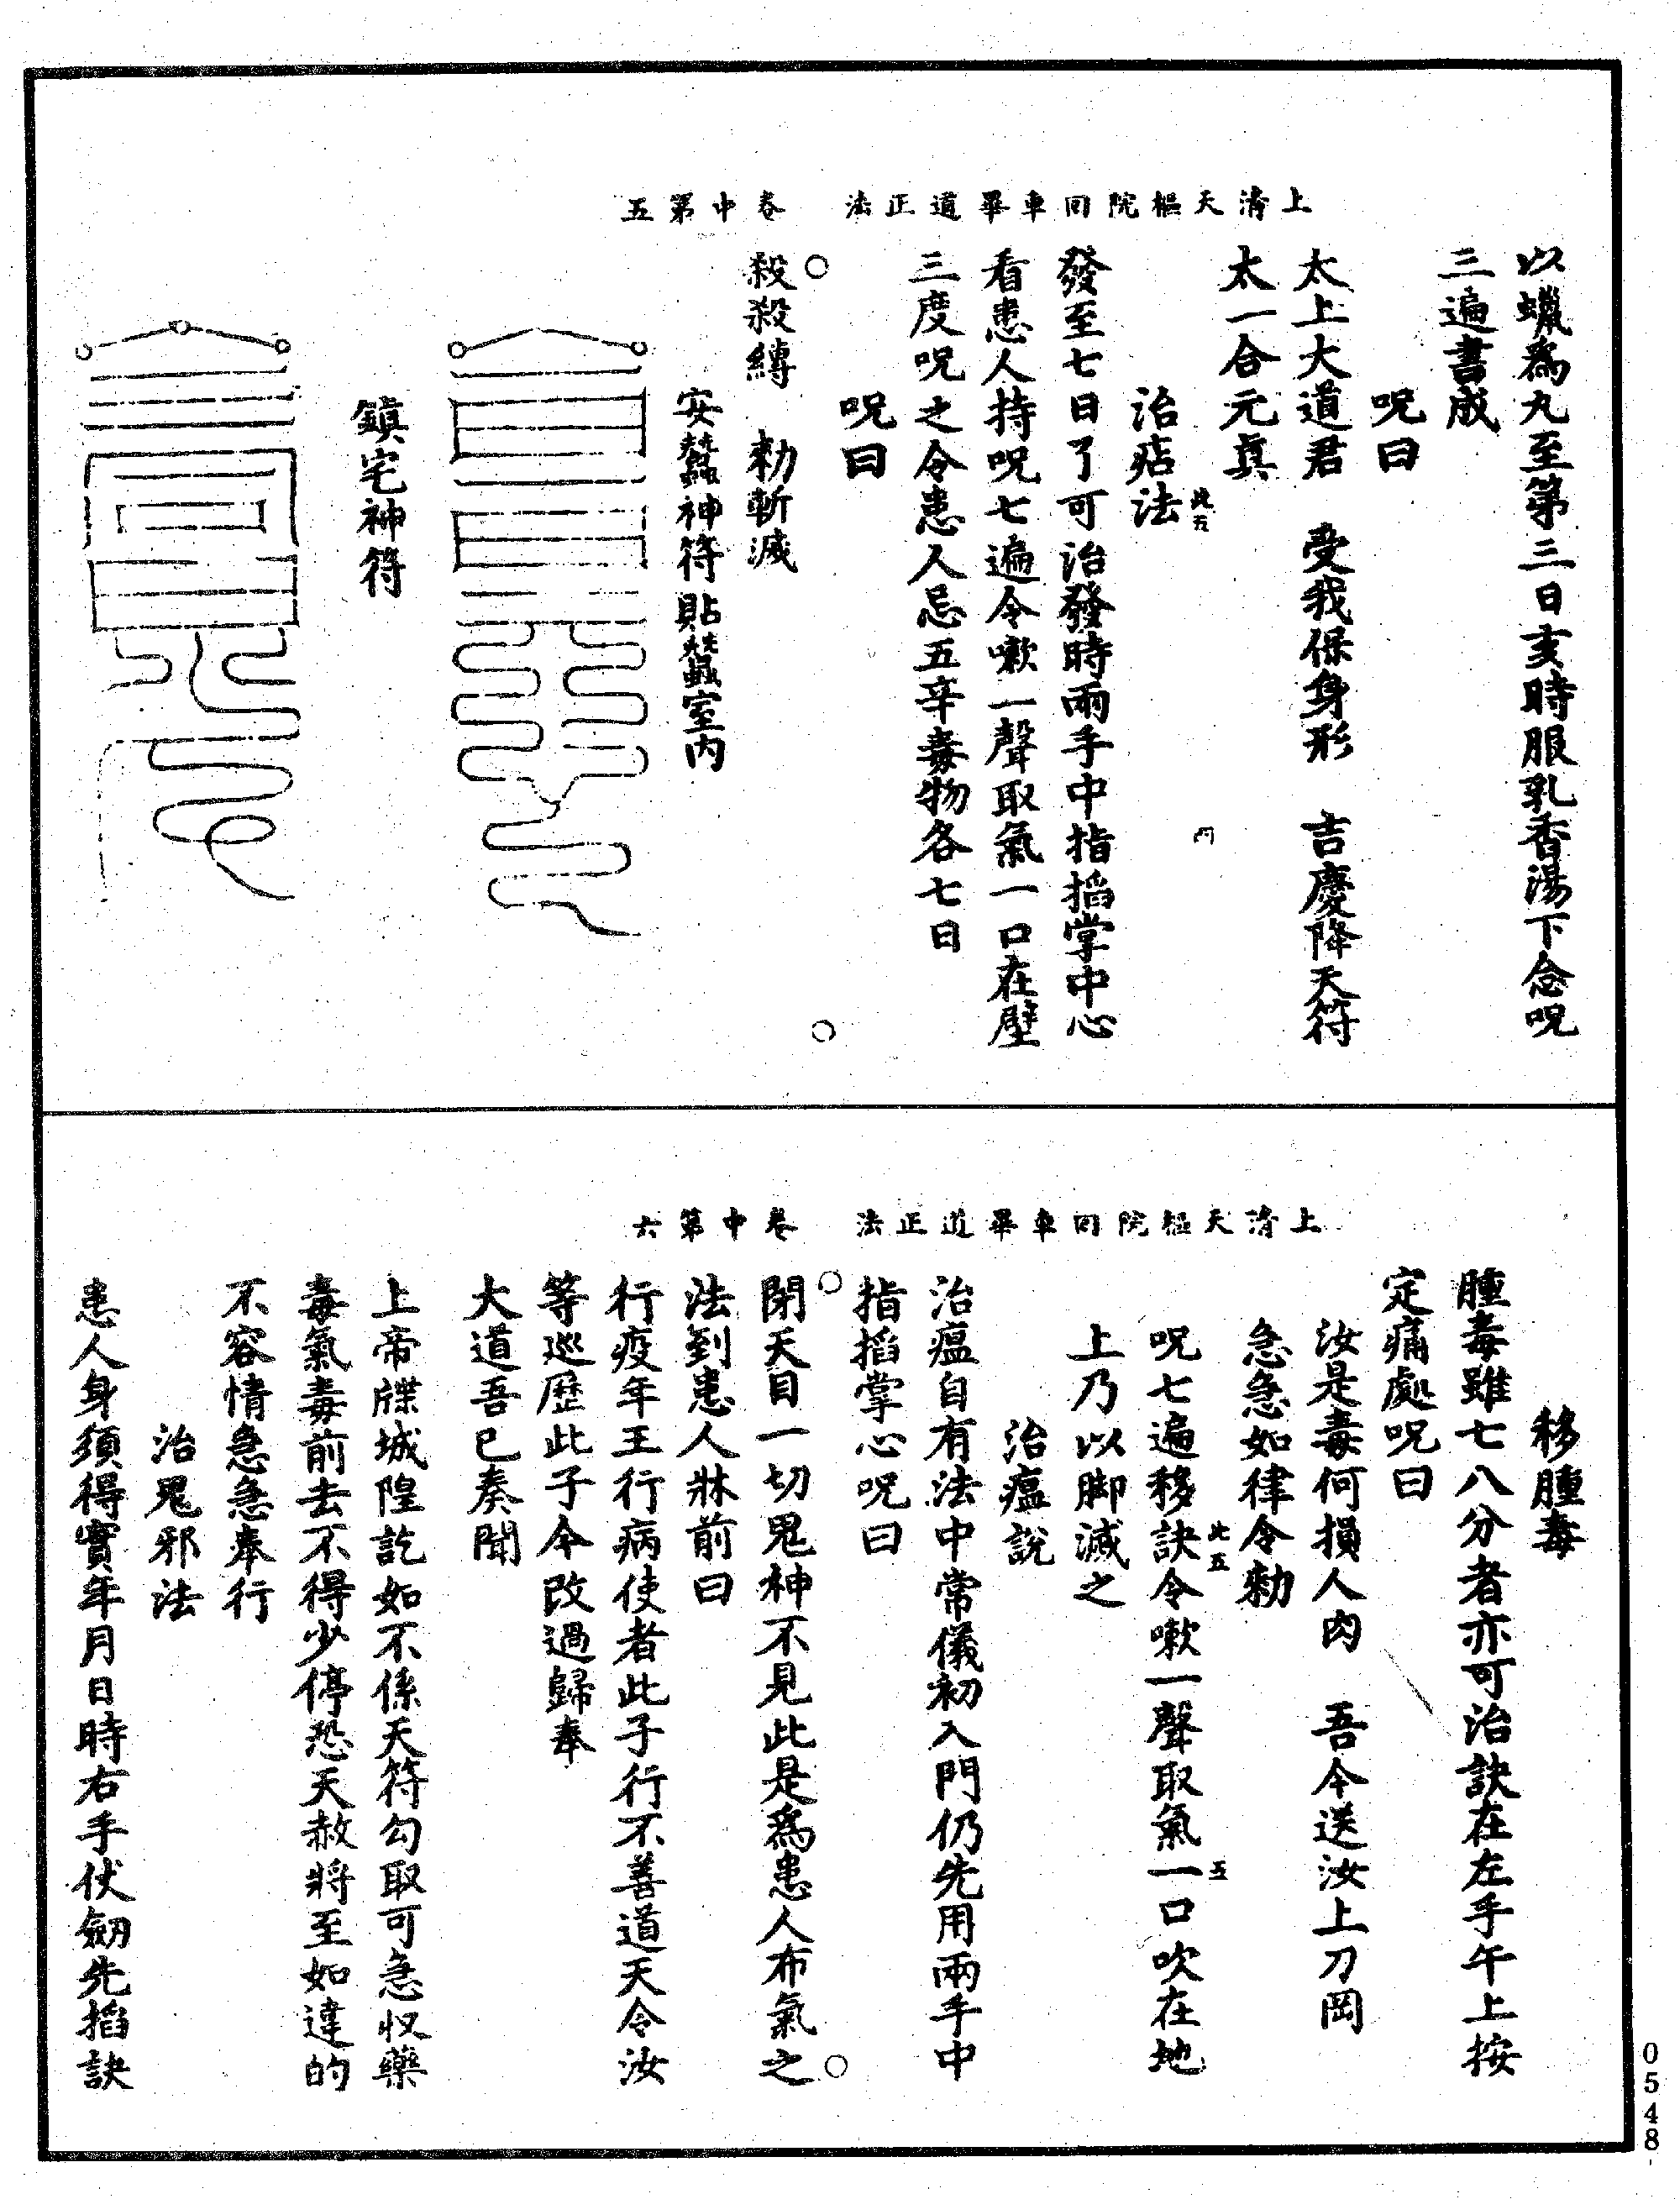 上清天樞院回車畢道正法　卷中第五
以蠟爲丸至第三日亥時服乳香湯下念呪
三遍書成
呪曰
太上大道君　受我保身形　吉慶降天符
太一合元真
治痁法
發至七日了可治發時兩手中指掐掌中心
看患人持呪七遍令嗽一聲取氣一口在壁
三度呪之令患人忌五辛毒物各七日
呪曰
殺殺縳　勑斬滅
安蠶神符貼蠶室內
鎮宅神符
上清天樞院回車畢道正法　卷中第六
移腫毒
腫毒雖七八分者亦可治訣在左手午上按
定痛處呪曰
汝是毒何損人肉　吾今送汝上刀岡
急急如律令勑
呪七遍移訣令嗽一聲取氣一口吹在地
上乃以脚滅之
治瘟說
治瘟自有法中常儀初入門仍先用兩手中
指掐掌心呪曰
閉天目一切鬼神不見此是爲患人布氣之
法到患人牀前曰
行疫年王行病使者此子行不善道天令汝
等巡歷此子今改過歸奉
大道吾已奏聞
上帝牒城隍訖如不係天符勾取可急收藥
毒氣毒前去不得少停恐天赦將至如違的
不容情急急奉行
治鬼邪法
患人身須得實年月日時右手伏劒先掐訣
0548